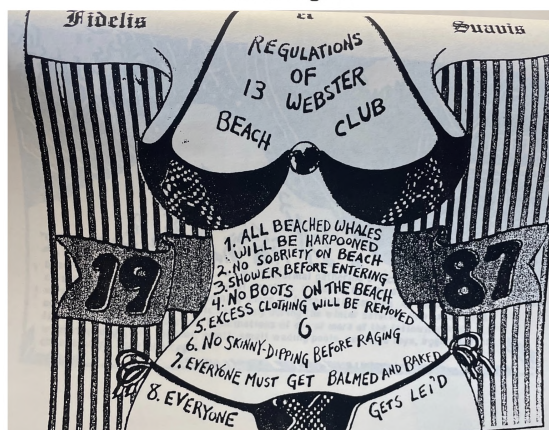 Fidelis Suavis
REGULATIONS
OF
13 WEBSTER
BEACH CLUB
1. ALL BEACHED WHALES
WILL BE HARPOONED
2. NO SOBRIETY ON BEACH
3. SHOWER BEFORE ENTERING
4. NO BOOTS ON THE BEACH
5. EXCESS CLOTHING WILL BE REMOVED
6. NO SKINNY-DIPPING BEFORE RAGING
7. EVERYONE MUST GET BALMED AND BAKED
8. EVERYONE GETS LEI'D
19 87